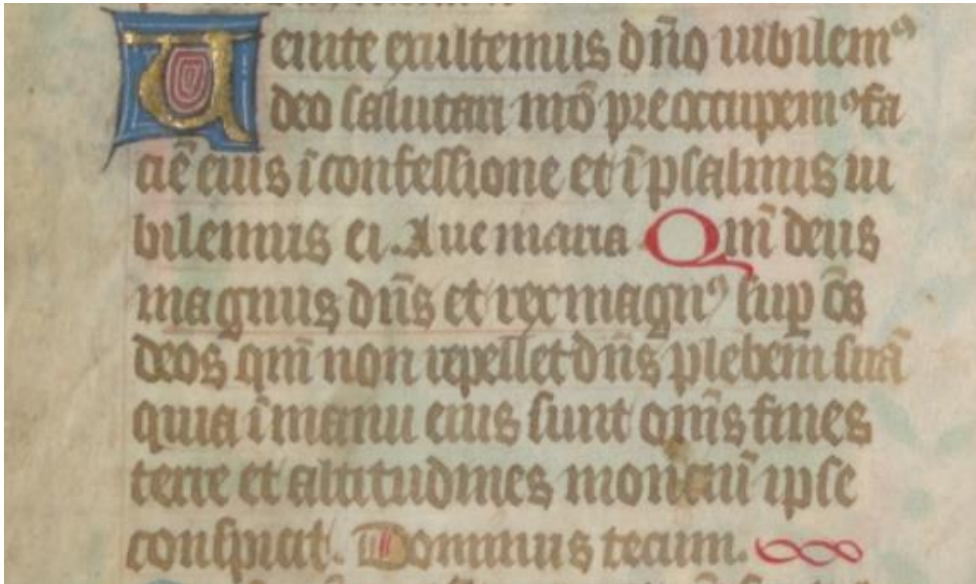 Uenite exultemus dño iubilemꝰ
deo salutari nrõ preoccupemꝰ fa
ciẽ eius ĩ confessione et ĩ psalmis iu
bilemus ei. Aue maria Qm̃ deus
magnus dñs et rex magnꝰ sup õs
deos qm̃ non repellet dñs plebem suã
quia ĩ manu eius sunt om̃s fines
terre et altitudines monciũ ipse
conspicit. Dominus tecum.